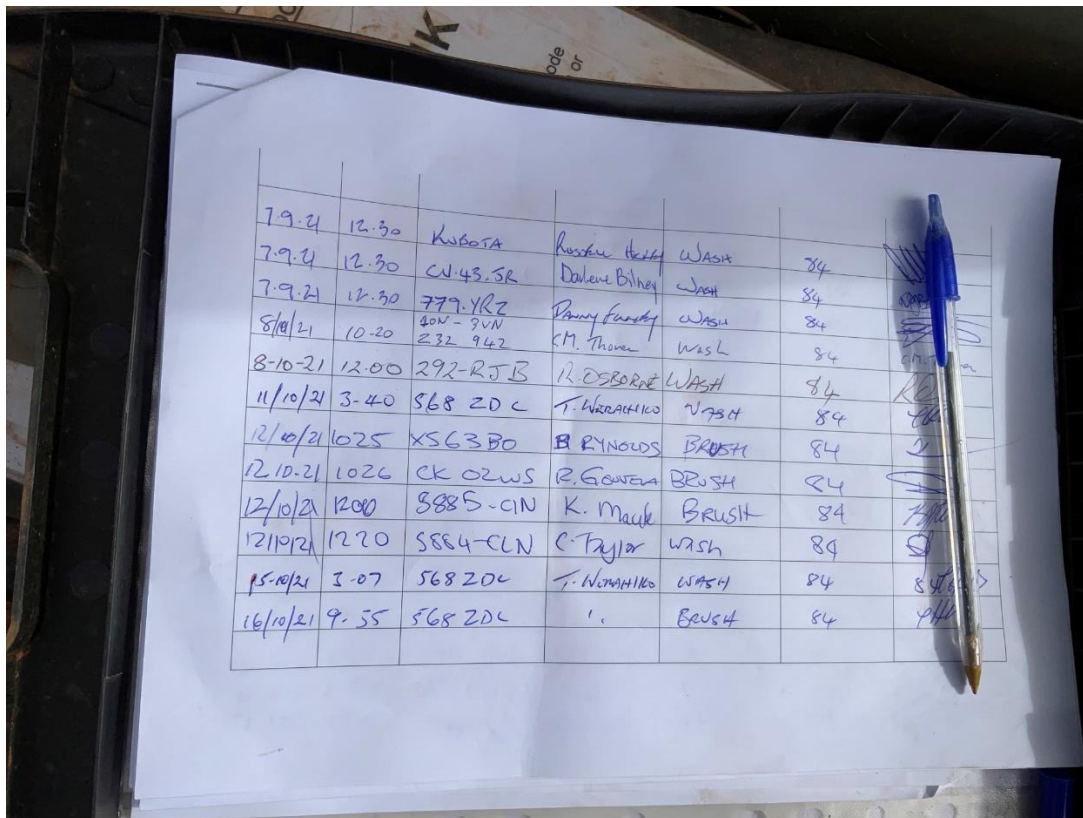 K
ode
or
7.9.21 12.30 KUBOTA WASH 84
7.9.21 12.30 CV.43.SR Darlene Bilney WASH 84
7.9.21 12.30 779.YRZ Danny WASH 84
8/10/21 10-20 232 942 Wash 84
8-10-21 12.00 292-RJB R. OSBORNE WASH 84
11/10/21 3-40 568 ZDC T. WASH 84
12/10/21 1025 XS63BO RYNOLDS BRUSH 84
12.10.21 1026 CK 02WS R. BRUSH 84
12/10/21 1200 S885-CIN K. BRUSH 84
12/10/21 1220 S884-CLN C. Taylor wash 84
15-10/21 3-07 568 ZDC T. WASH 84
16/10/21 9-55 568 ZDC BRUSH 84